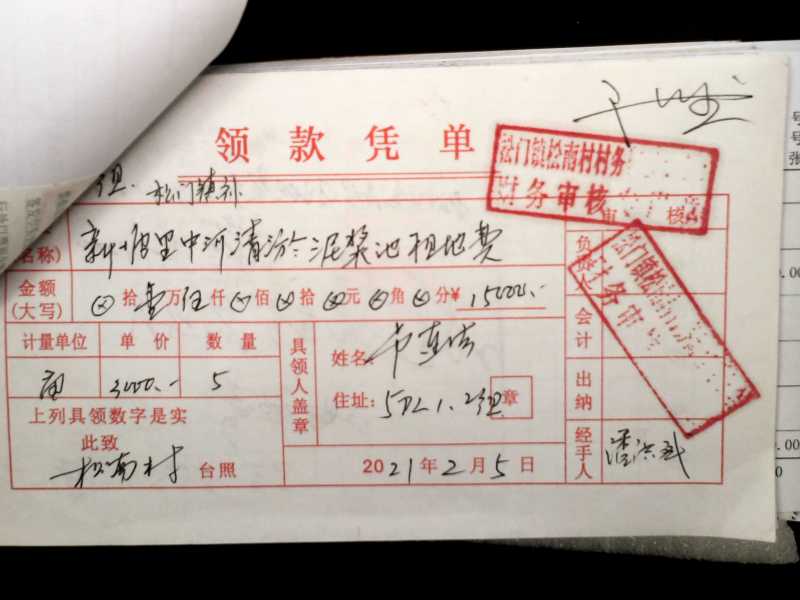 领款凭单
松门镇松南村村务
财务审核
组 松门镇补
名称)
中河清淤泥浆池租地费
审核
负责人
松门镇松南
财务审
金额
(大写)
⊗拾壹万伍仟⊗佰⊗拾⊗元⊗角⊗分¥ 15000.-
会计
计量单位 单价 数量
亩 3000.- 5
具领人盖章
姓名:
住址: 1.2组 章
出纳
上列具领数字是实
此致
松南村 台照
2021年2月5日
经手人